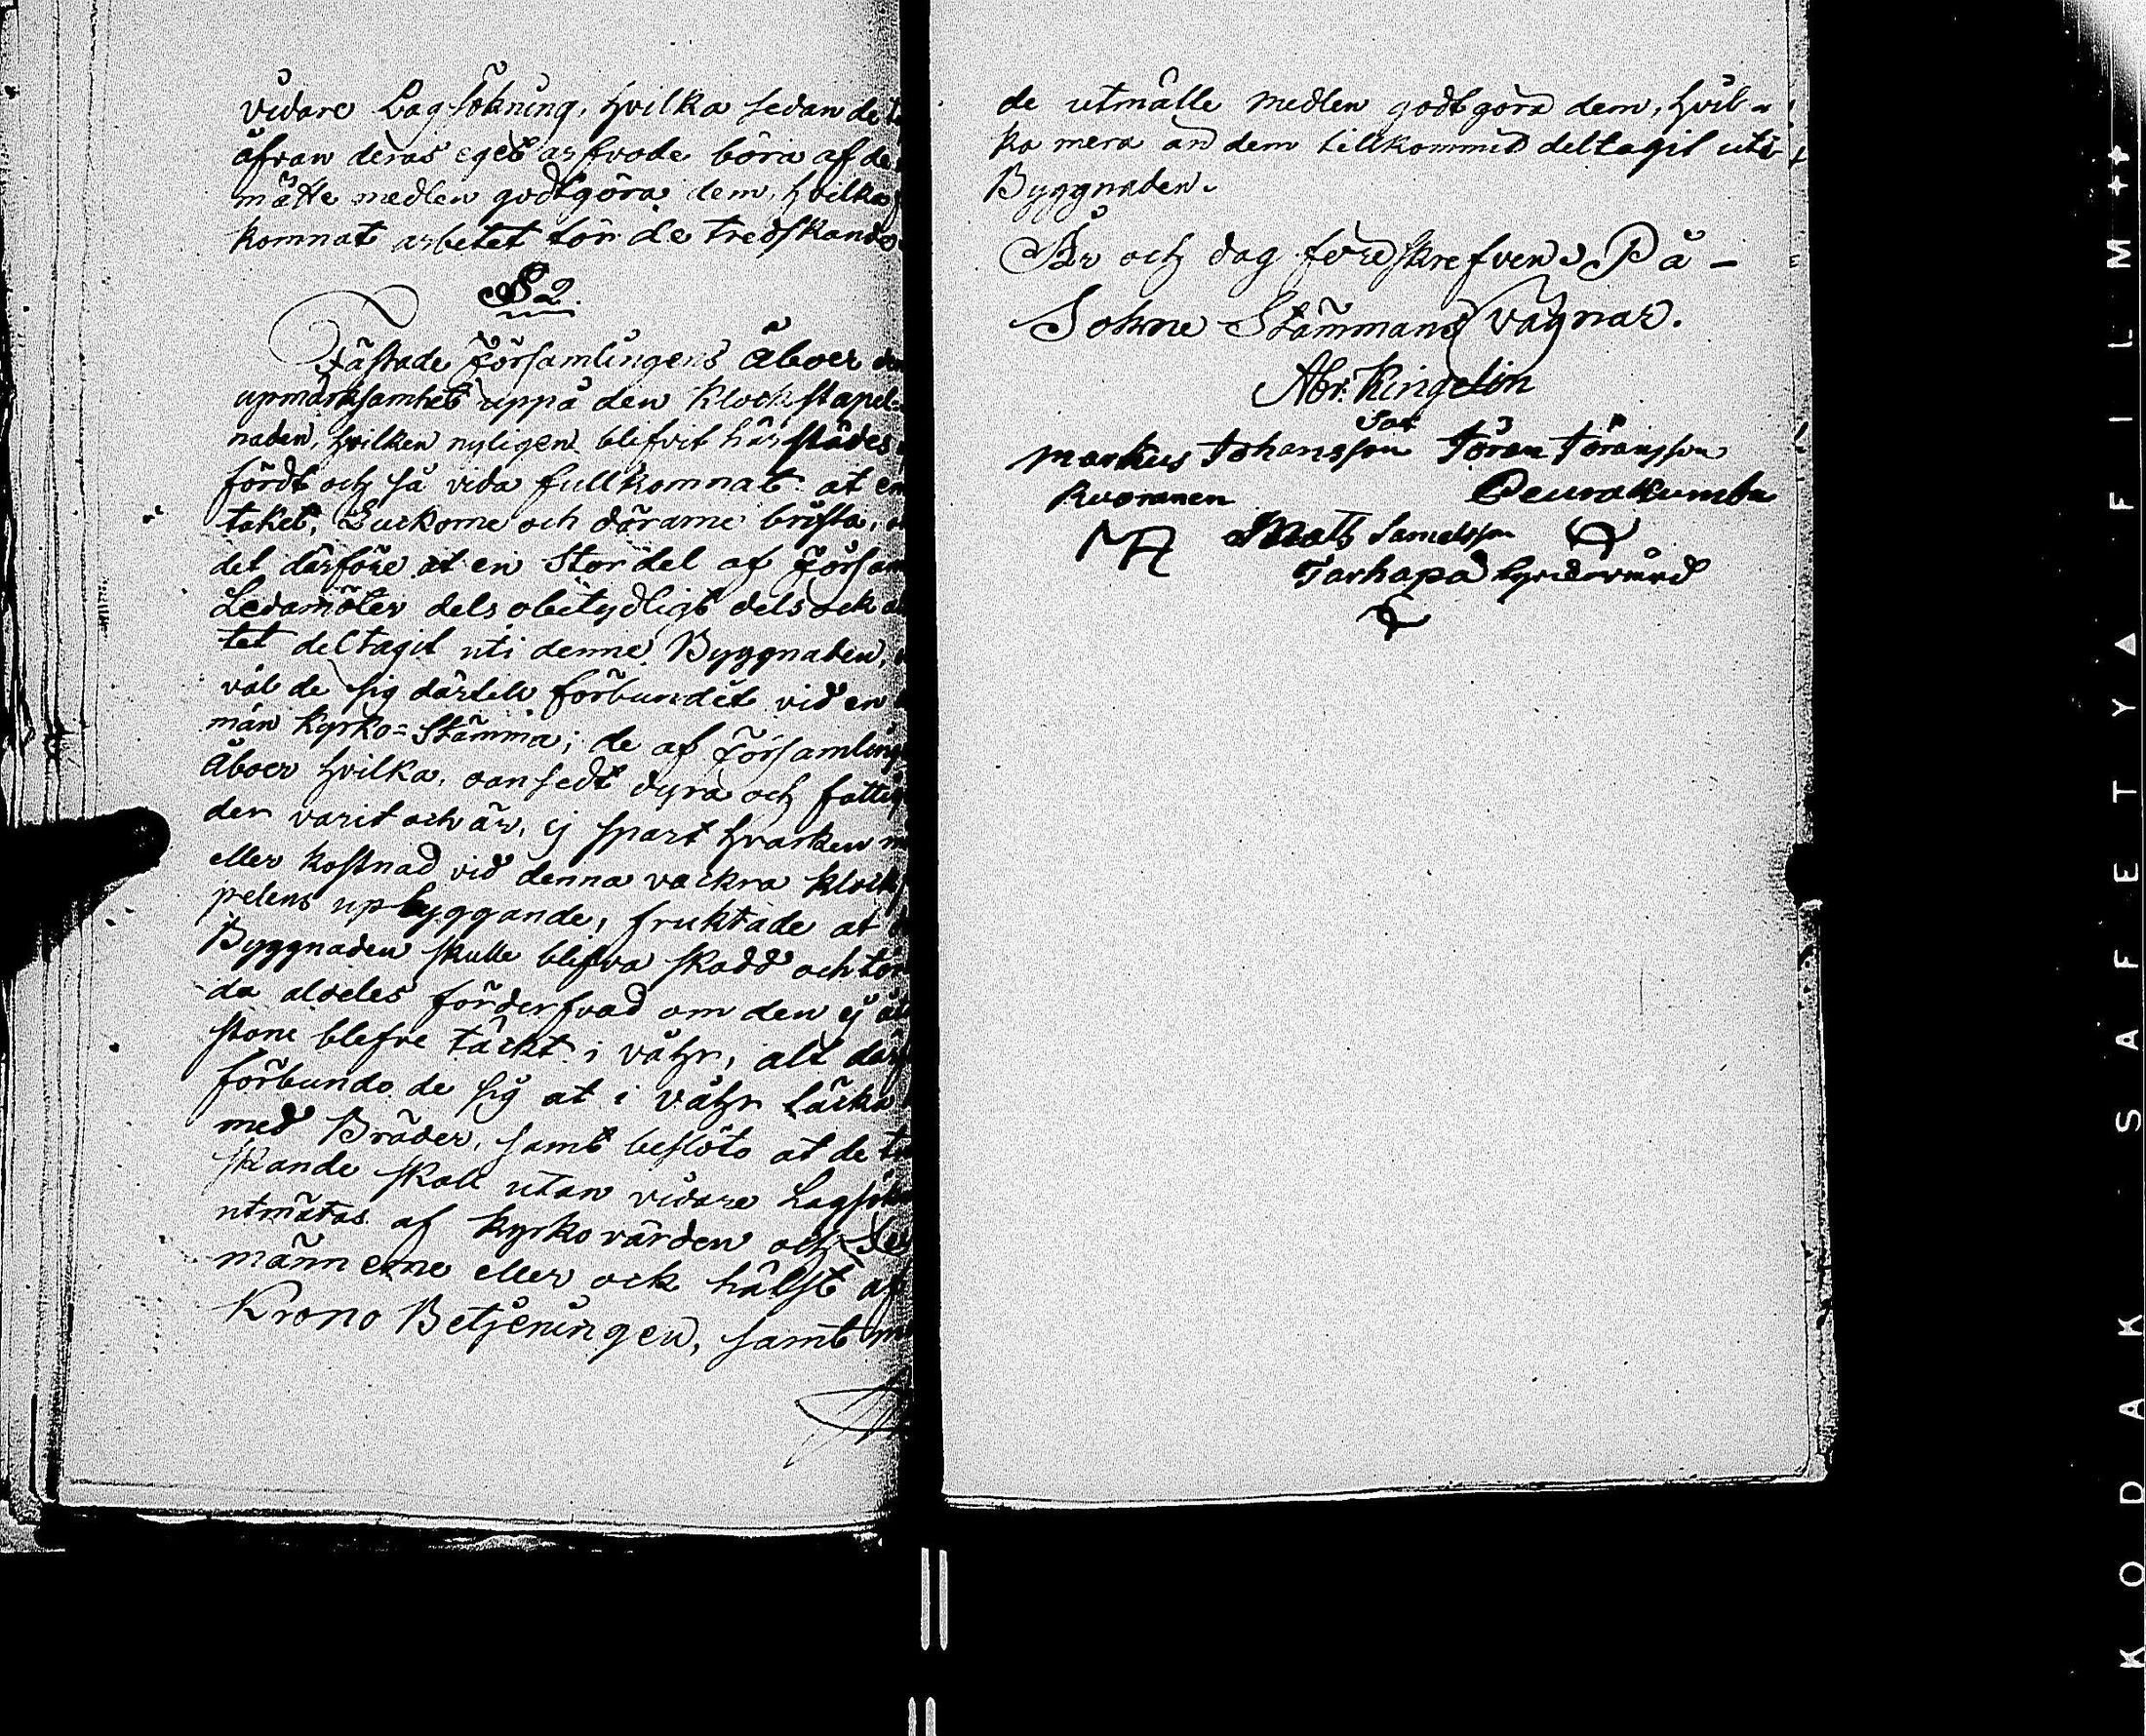 vidare Lagsökning, hvilka sedan de
åfvan deras eget arfvode böra af de
mätte medlen godtgöra dem, hvilka
komnat arbetet för de tredskande
§ 2
Fästade Församlingens Åboer
upmärksamhet uppå den Klockstapel=
naden, hvilken nyligen blifvit härstädes
fördt och så vida fullkomnat at en
taket, Luckorne och dörarne brista,
det därföre at en Stor del af Försam
Ledamöter dels obetydligt dels ock
tet deltagit uti denne Byggnaden,
väl de sig därtill förbundet vid en
män Kyrko=Stämma; de af Församling
Åboer hvilka, oansedt dyra och fattig
der varit och är, ej spart hvarken
eller kostnad vid denna vackra klock
pelens upbyggande, fruktade at
Byggnaden skulle blifva skadd och
da aldeles förderfvad om den ej åt
stone blefve täckt i våhr, alt där
förbundo de sig at i våhr täcka
med Bräder, samt beslöto at de
skande skall utan vidare Lagsök
utmätas af kyrkovärden och
männerne eller ock hälst af
Krono Betjeningen, samt
de utmätte medlen godtgöra dem, hvil=
ka mera än dem tillkommit deltagit uti
Byggnaden.
År och dag föreskrefven. På
Sokne Stämmans vägnar.
Abr. Ringelin
Markus Johansson Jöran Jöransson
Ruonanen Peurakumbu
Matts Samelsson
Tarhapä